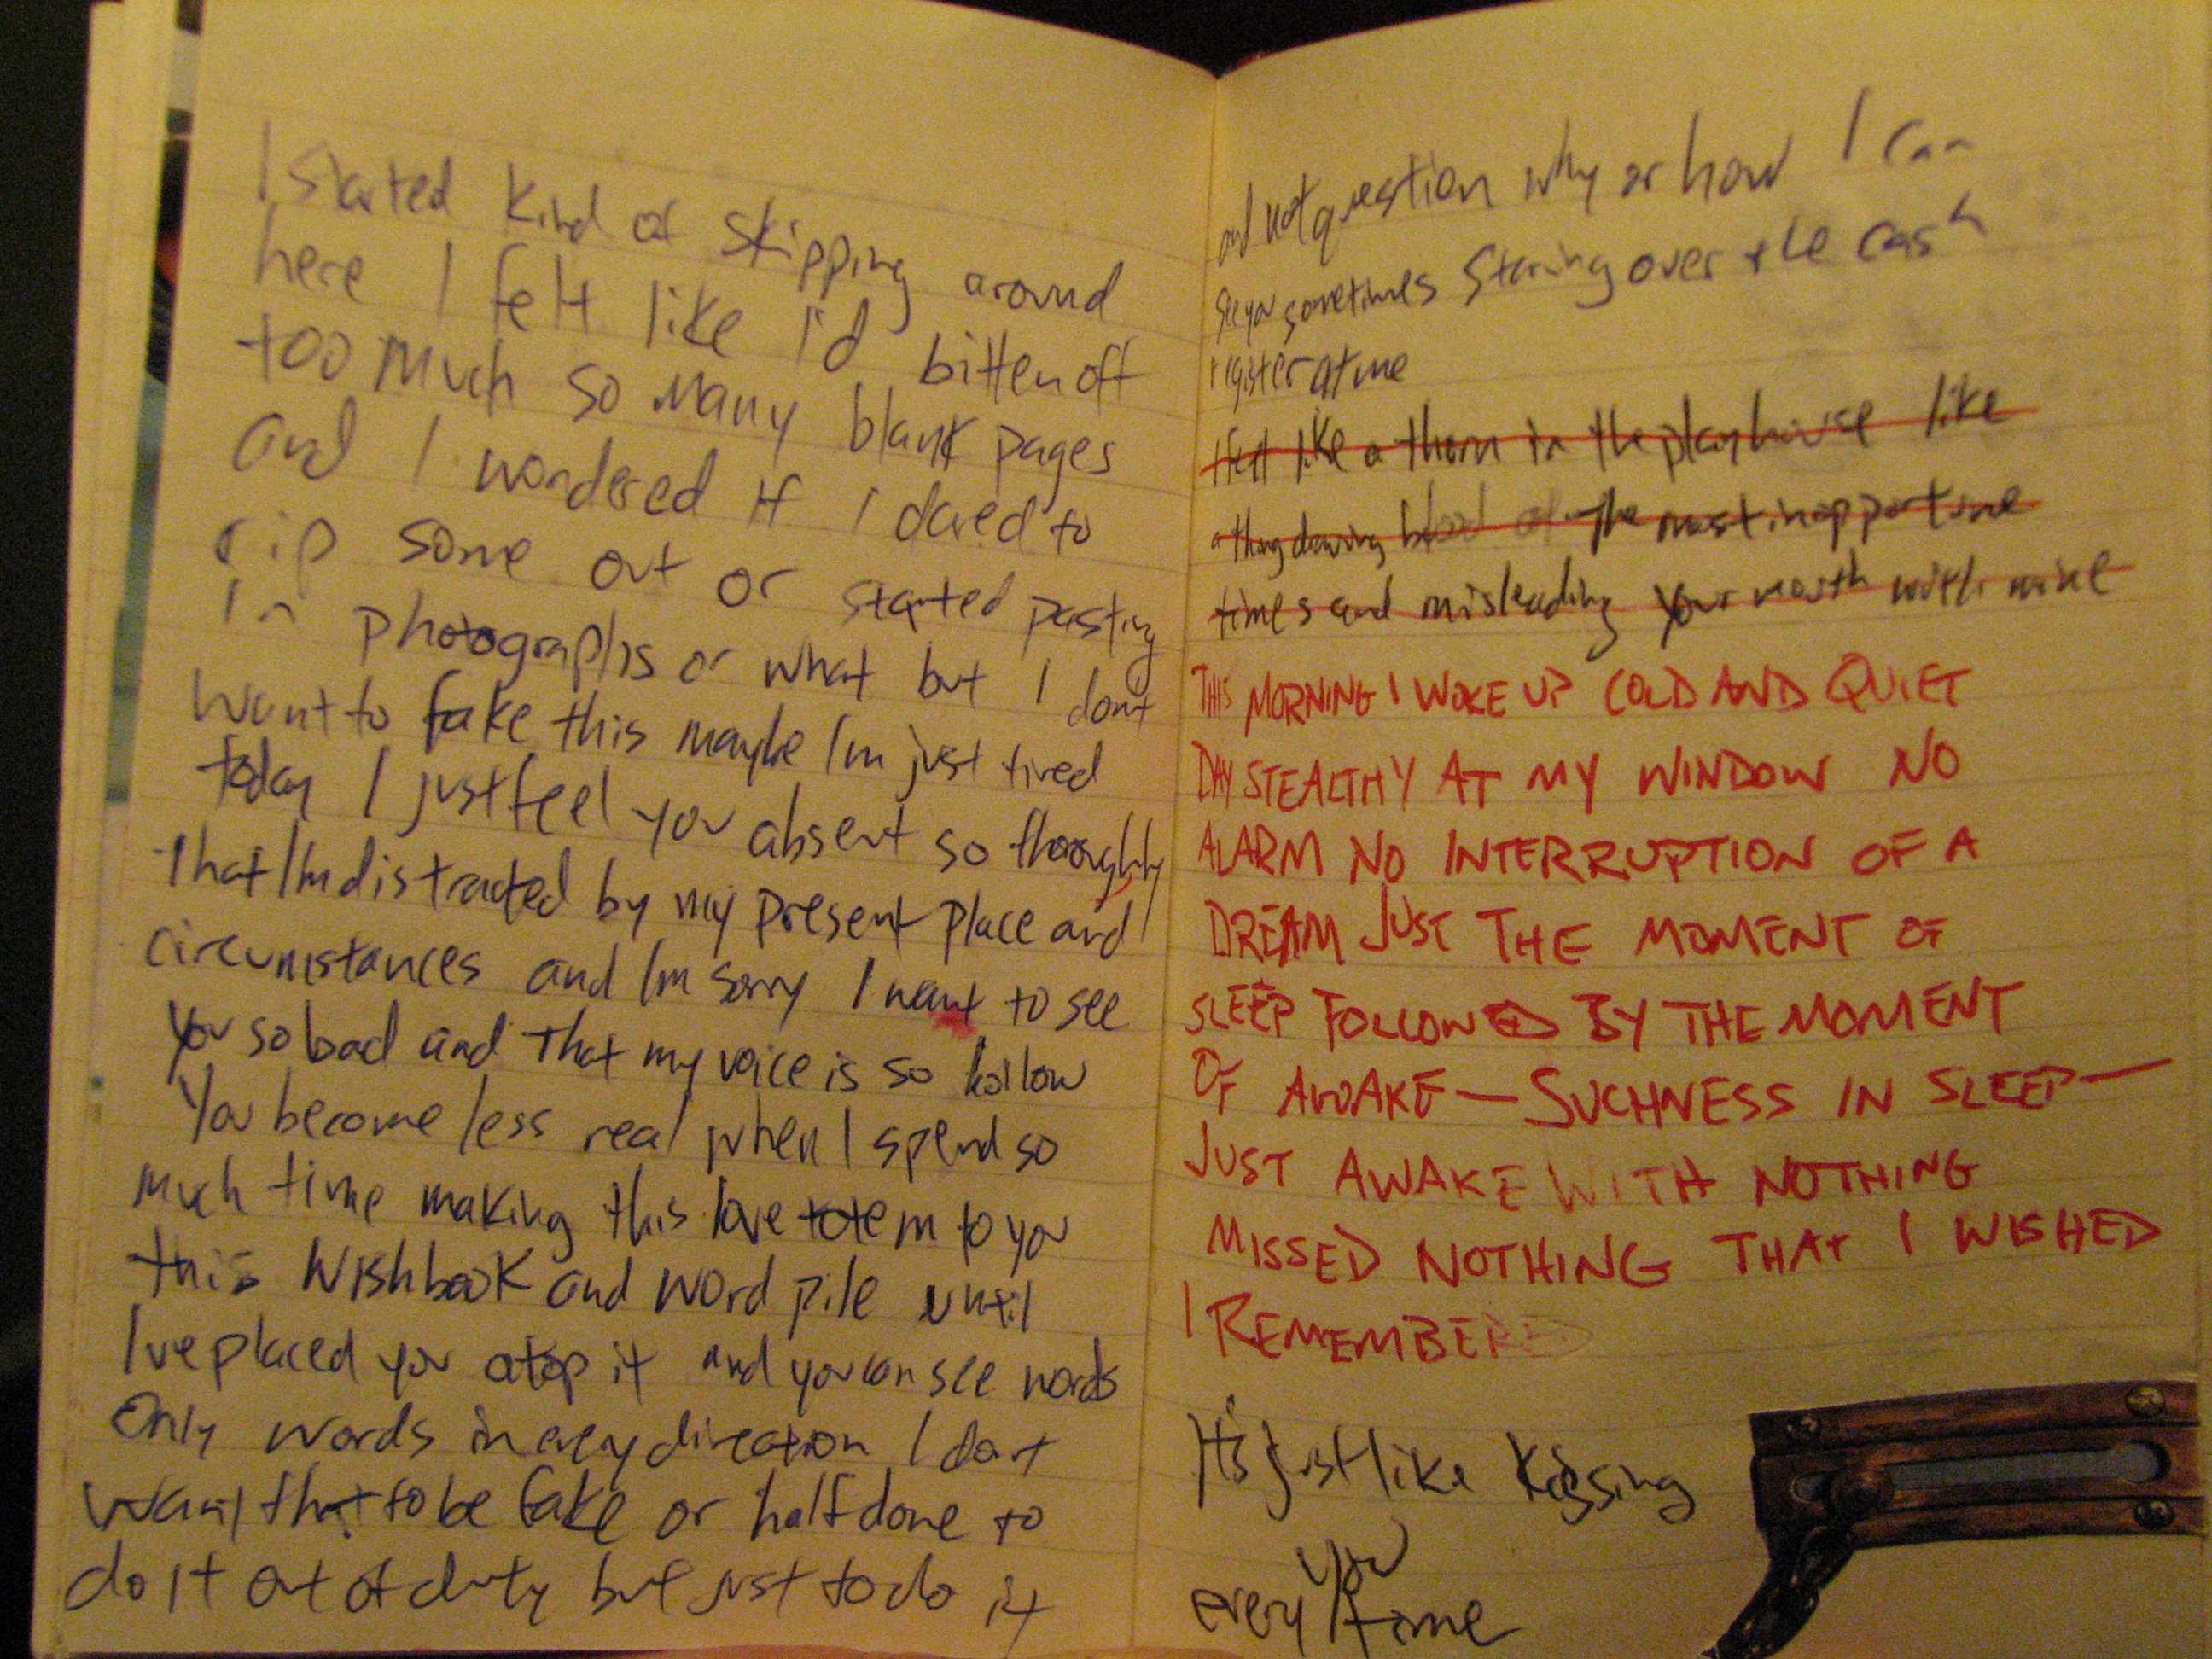 I started kind of skipping around
here I felt like I'd bitten off
too much so many blank pages
and I wondered if I dared to
rip some out or started pasting
in photographs or what but I dont
want to fake this maybe Im just tired
today I just feel you absent so thoroughly
that Im distracted by my present place and
circumstances and Im sorry I want to see
you so bad and that my voice is so hollow
You become less real when I spend so
much time making this love totem to you
this wishbook and word pile until
Ive placed you atop it and you can see words
only words in every direction I dont
want that to be fake or halfdone to
do it out of duty but just to do it
and not question why or how I can
see you sometimes staring over the cash
register at me
I feel like a thorn in the playhouse like
a thing drawing blood at the most inopportune
times and misleading your mouth with mine
THIS MORNING I WOKE UP COLD AND QUIET
DAY STEALTHY AT MY WINDOW NO
ALARM NO INTERRUPTION OF A
DREAM JUST THE MOMENT OF
SLEEP FOLLOWED BY THE MOMENT
OF AWAKE — SUCHNESS IN SLEEP —
JUST AWAKE WITH NOTHING
MISSED NOTHING THAT I WISHED
I REMEMBERED
It's just like kissing
you
every time